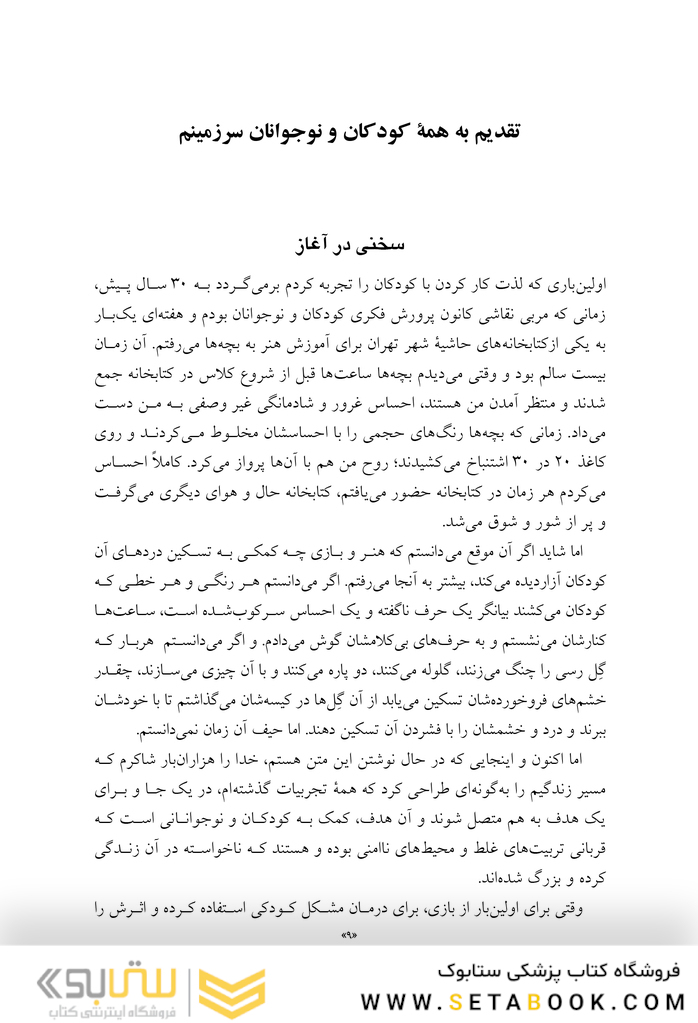 تقدیم به همهٔ کودکان و نوجوانان سرزمینم
سخنی در آغاز
اولین‌باری که لذت کار کردن با کودکان را تجربه کردم برمی‌گردد به ۳۰ سال پیش،
زمانی که مربی نقاشی کانون پرورش فکری کودکان و نوجوانان بودم و هفته‌ای یک‌بار
به یکی ازکتابخانه‌های حاشیهٔ شهر تهران برای آموزش هنر به بچه‌ها می‌رفتم. آن زمان
بیست سالم بود و وقتی می‌دیدم بچه‌ها ساعت‌ها قبل از شروع کلاس در کتابخانه جمع
شدند و منتظر آمدن من هستند، احساس غرور و شادمانگی غیر وصفی به من دست
می‌داد. زمانی که بچه‌ها رنگ‌های حجمی را با احساسشان مخلوط می‌کردند و روی
کاغذ ۲۰ در ۳۰ اشتنباخ می‌کشیدند؛ روح من هم با آن‌ها پرواز می‌کرد. کاملاً احساس
می‌کردم هر زمان در کتابخانه حضور می‌یافتم، کتابخانه حال و هوای دیگری می‌گرفت
و پر از شور و شوق می‌شد.
اما شاید اگر آن موقع می‌دانستم که هنر و بازی چه کمکی به تسکین دردهای آن
کودکان آزاردیده می‌کند، بیشتر به آنجا می‌رفتم. اگر می‌دانستم هر رنگی و هر خطی که
کودکان می‌کشند بیانگر یک حرف ناگفته و یک احساس سرکوب‌شده است، ساعت‌ها
کنارشان می‌نشستم و به حرف‌های بی‌کلامشان گوش می‌دادم. و اگر می‌دانستم هربار که
گِل رسی را چنگ می‌زنند، گلوله می‌کنند، دو پاره می‌کنند و با آن چیزی می‌سازند، چقدر
خشم‌های فروخورده‌شان تسکین می‌یابد از آن گِل‌ها در کیسه‌شان می‌گذاشتم تا با خودشان
ببرند و درد و خشمشان را با فشردن آن تسکین دهند. اما حیف آن زمان نمی‌دانستم.
اما اکنون و اینجایی که در حال نوشتن این متن هستم، خدا را هزاران‌بار شاکرم که
مسیر زندگیم را به‌گونه‌ای طراحی کرد که همهٔ تجربیات گذشته‌ام، در یک جا و برای
یک هدف به هم متصل شوند و آن هدف، کمک به کودکان و نوجوانانی است که
قربانی تربیت‌های غلط و محیط‌های ناامنی بوده و هستند که ناخواسته در آن زندگی
کرده و بزرگ شده‌اند.
وقتی برای اولین‌بار از بازی، برای درمان مشکل کودکی استفاده کرده و اثرش را
«۹»
فروشگاه کتاب پزشکی ستابوک
WWW.SETABOOK.COM
ستابوک
فروشگاه اینترنتی کتاب